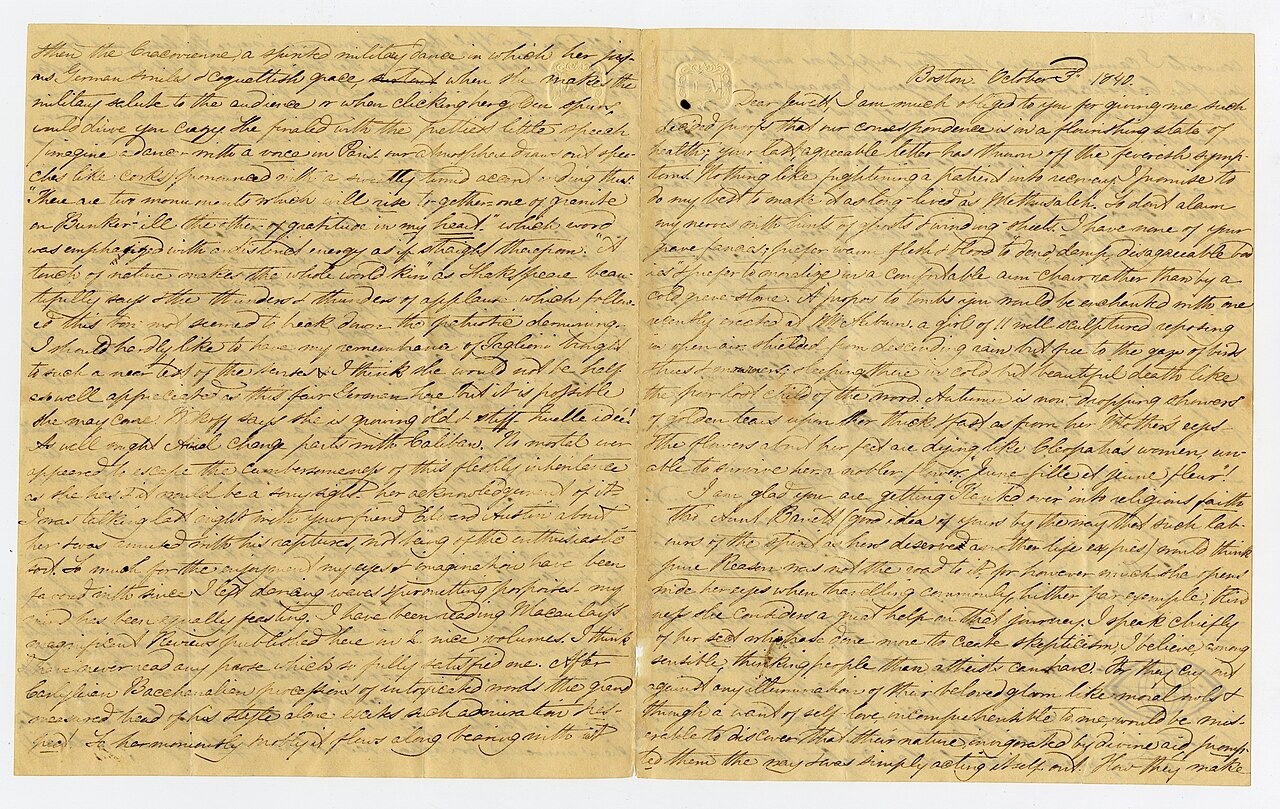 Boston October 3d 1840.
Dear Jewett I am much obliged to you for giving me such
decided proofs that our correspondence is in a flourishing state of
health; your last agreeable letter has thrown off the feverish symp-
toms. Nothing like frightening a patient into recovery. I promise to
do my best to make it as long lived as Methusalah. So dont alarm
my nerves with hints of ghosts & winding sheets. I have none of your
grave fancies; prefer warm flesh & blood to dead damp, disagreeable bod
ies & prefer to moralize in a comfortable arm chair rather than by a
cold grave stone. Apropos to tombs you would be enchanted with one
recently erected at Mt Auburn. a girl of 11 well sculptured reposing
in open air, shielded from descending rain but free to the gaze of birds
trees & mourners, sleeping there in cold but beautiful death like
the poor lost child of the wood. Autumn is now dropping showers
of golden tears upon her thick & fast as from her Mothers eyes.
The flowers about her feet are dying like Cleopatras women, un-
able to survive her a nobler flower, "jeune fille et jeune fleur"!
I am glad you are getting over into religious faith
this Aunt (good idea of yours by the way that such lab-
ours of the spirit as hers deserved another life express) would think
pure Reason was not the road to it, for however much she opens
wide her eyes when travelling commonly hither for example, blind
ness she considers a great help on that journey. I speak chiefly
of her sect who have done more to create skepticism, I believe, among
sensible, thinking people than atheists can have. For they cry out
against any illumination of their beloved gloom like moral owls &
through a want of self love, incomprehensible to me, would be mis-
erable to discover that their nature, invigorated by divine aid, promp-
ted them the way & was simply acting itself out. How they make
then the Cracovienne, a spirited military dance in which her joy-
ous German smiles & coquettish grace, when she makes the
military salute to the audience or when clicking her golden spurs,
would drive you crazy. She finaled with the prettiest little speech
(imagine a dancer with a voice in Paris. our atmosphere draws out spee-
ches like corks) pronounced with a sweetly turned accent, ending thus.
"There are two monuments which will rise together: one of granite
on Bunker-'ill the other of gratitude in my heart" which word
was emphasized with a distinct energy as if straight therefrom. "A
touch of nature makes the whole world kin" as Shakspeare beau-
tifully says & the thunders & thunders of applause which follow-
ed this bon mot seemed to break down the
I should hardly like to have my remembrance of Taglioni brought
to such a near test of the senses & I think she would not be half
as well appreciated as this fair German here but it is possible
she may come. says she is growing old & stiff. Quelle idée!
As well might Ariel change parts with Caliban. No mortal ever
appeared to escape the cumbersomeness of this fleshly inheritance
as she has & it would be a sorry sight her acknowledgement of it.
I was talking last night with your friend Edward Austin about
her & was amused with his raptures, not being of the enthusiastic
sort. So much for the enjoyment my eyes & imagination have been
favored with since I left dancing waves & porpoises. my
mind has been equally feasting. I have been reading Macaulays
magnificent Reviews published here in 2 nice volumes. I think
I have never read any prose which so fully satisfied me. After
Carlyleian Bacchanalian processions of intoxicated words the grand
measured tread of his style alone excites such admiration & res-
pect. So harmoniously mostly it flows along bearing with it